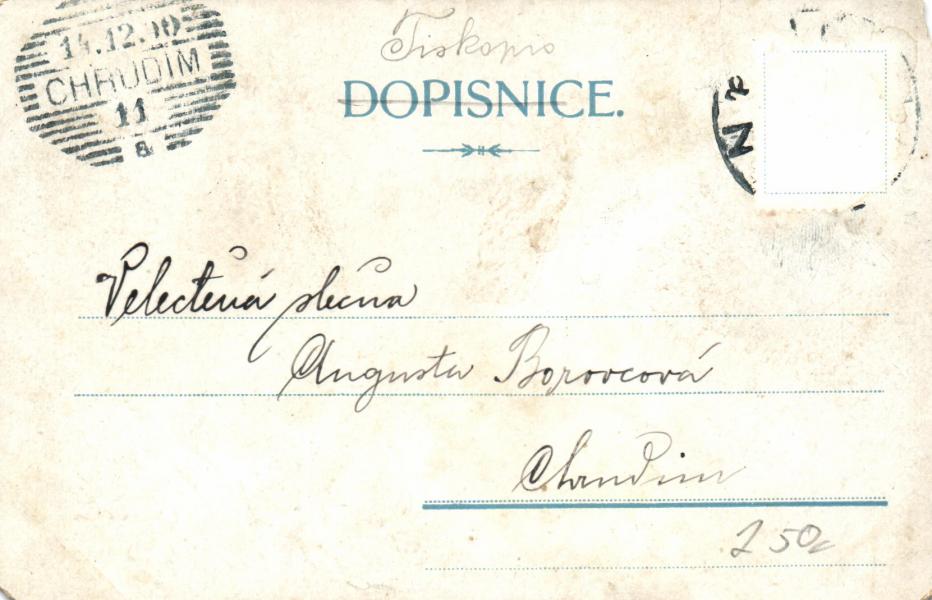 14.12.00
CHRUDIM
11
8
Tiskopis
DOPISNICE.
N
Velectěná slečna
Augusta Borovcová
Chrudim
250